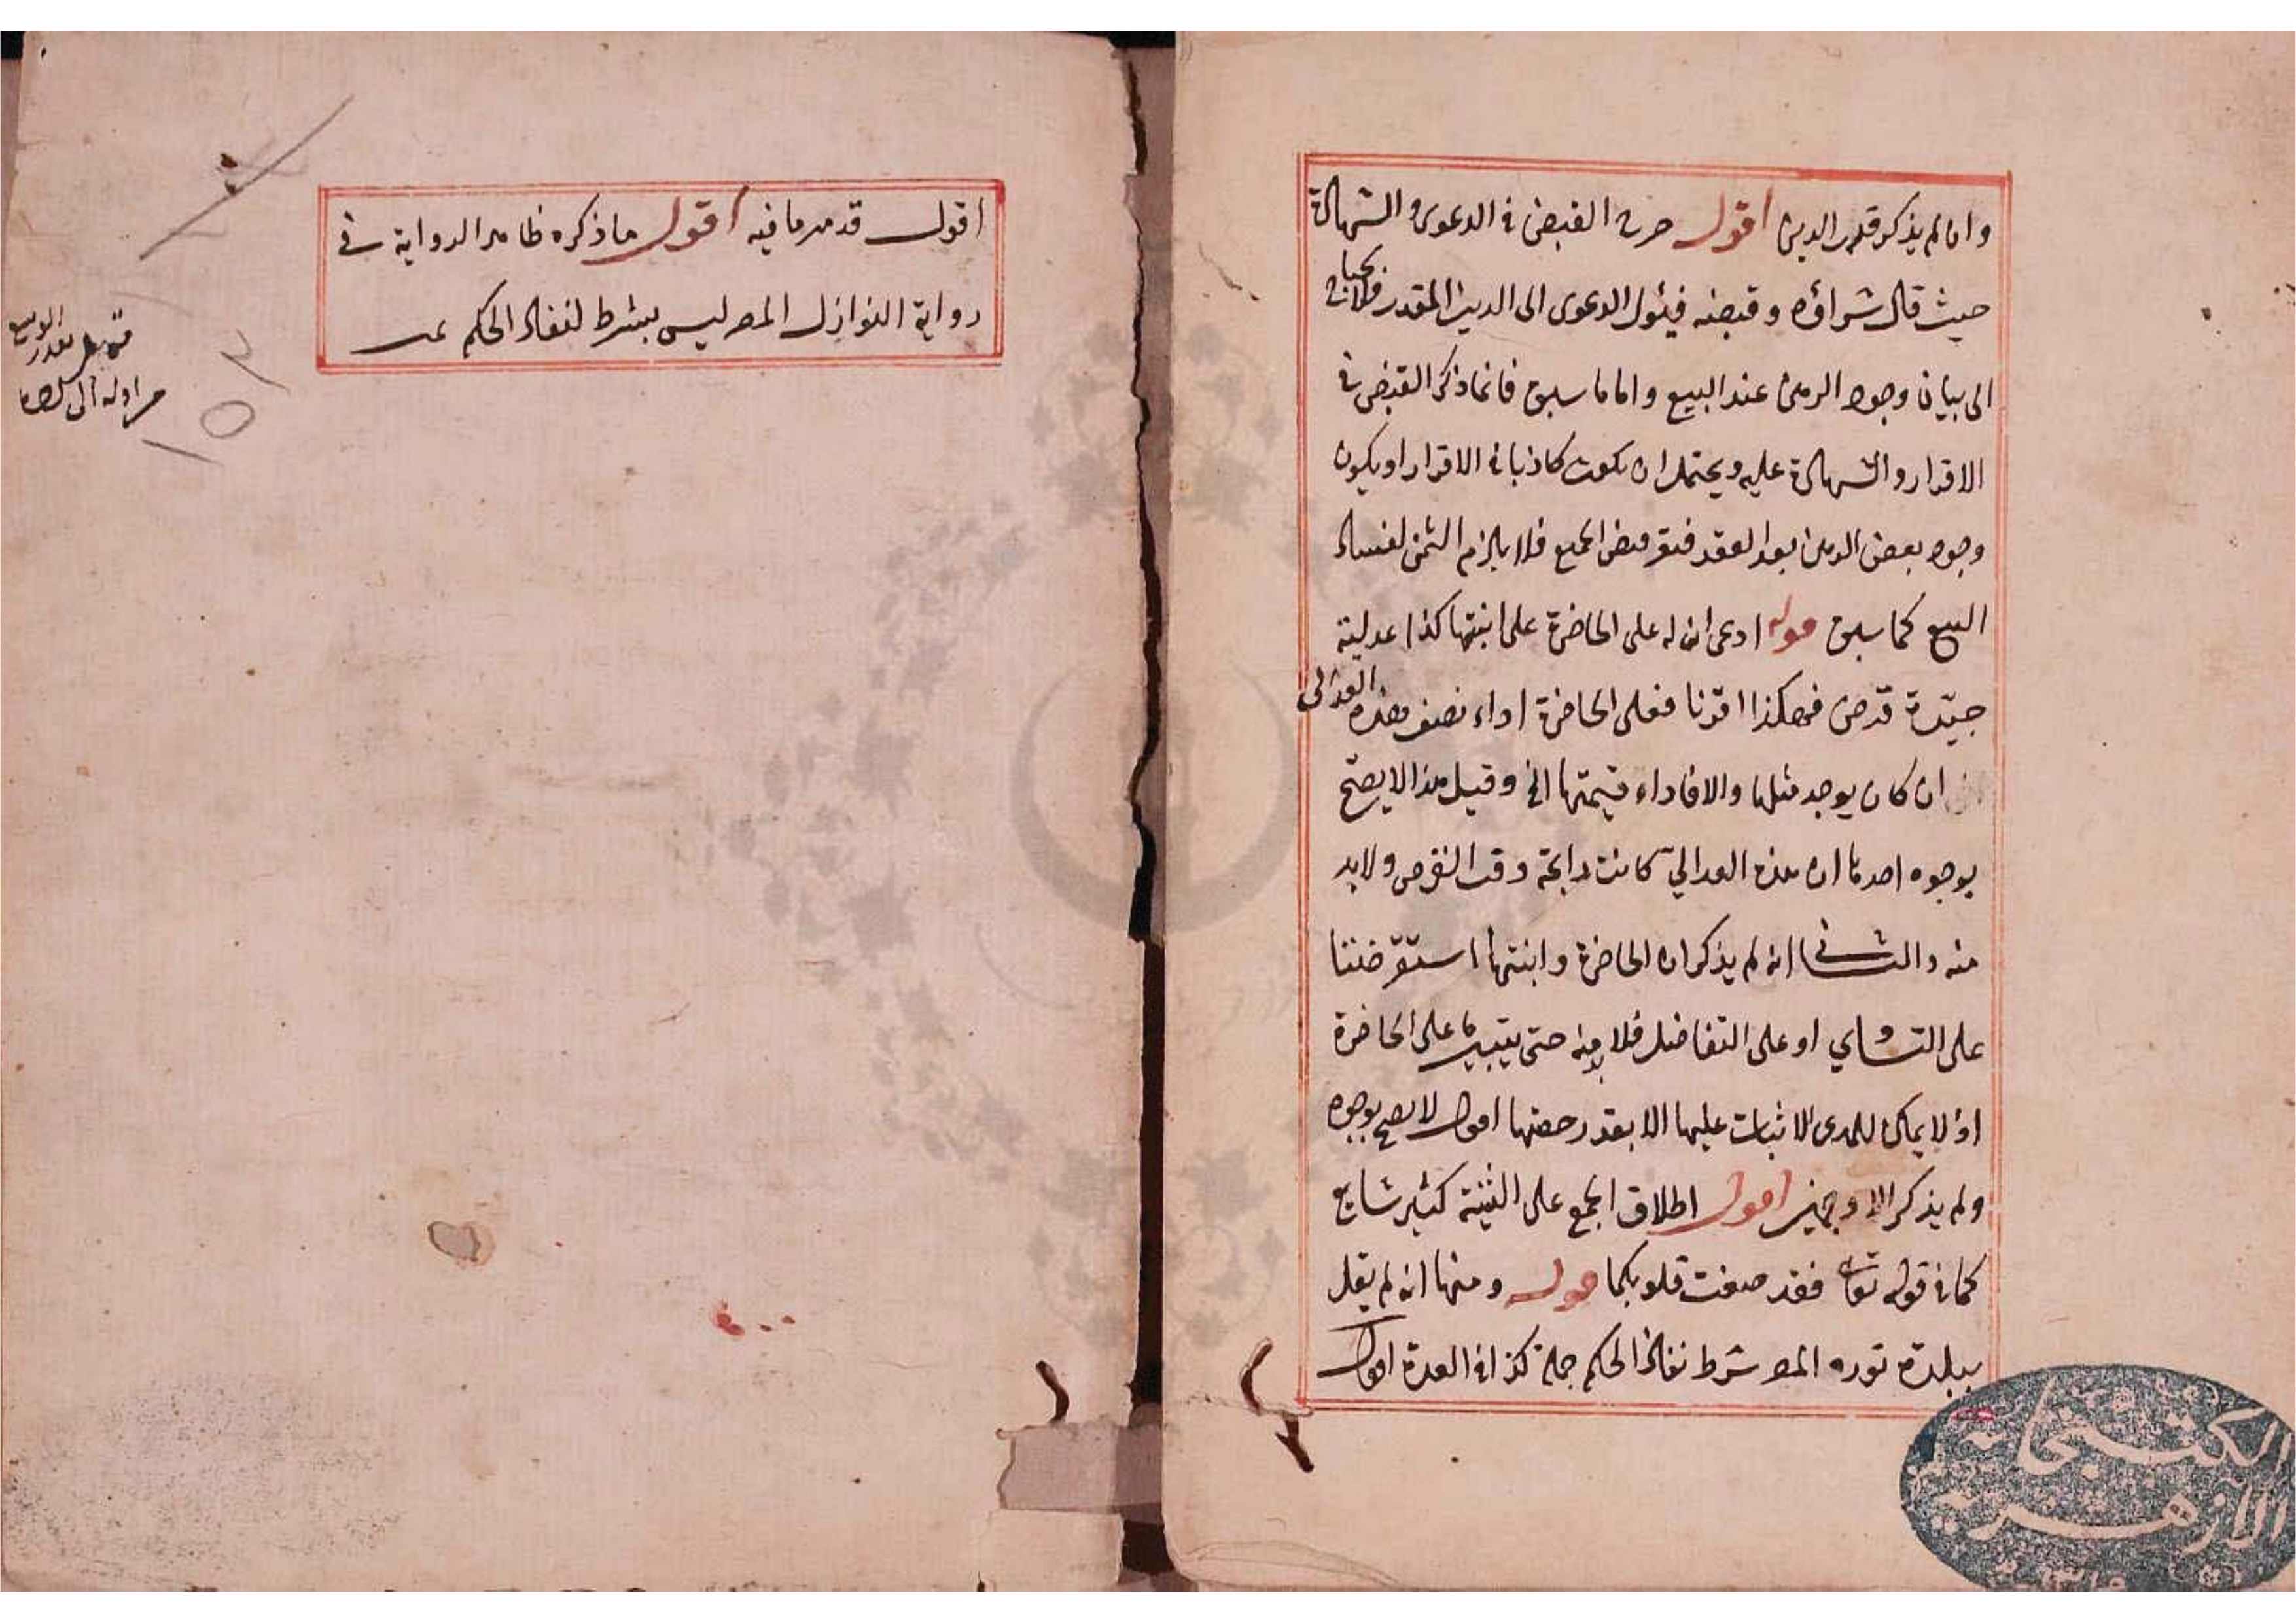 وان لم يذكر قدر الدين اقول صرح القبض فى الدعوى والشهادة
حيث قال شراؤه وقبضه فيئول الدعوى الى الدين المقدر فلا يحتاج
الى بيان وجود الرهن عند البيع واما ما سبق فانما ذكر القبض فى
الاقرار والشهادة عليه ويحتمل ان يكون كاذبا فى الاقرار او يكون
وجود بعض الدهن بعد العقد فيقر قبض الجميع فلا يلزم الثمن لفساد
البيع كما سبق قوله ادعى ان له على الحاضرة على ابنتها كذا عدلية
جيّدة قرض فهكذا اقرتا فعلى الحاضرة اداء نصف هذه العدالى
ان كان يوجد مثلها والا فاداء قيمتها الخ وقيل هذا لا يصح
بوجوه احدها ان هذه العدالي كانت رايجة وقت القرض ولا بد
منه والثانى انه لم يذكر ان الحاضرة وابنتها استقرضتا
على التساوي او على التفاضل فلا بد منه حتى يتبين ما على الحاضرة
اذ لا يمكن للمدعى الاثبات عليها الا بقدر حصتها اقول لا يصح بوجوه
ولم يذكر الا وجهين اقول اطلاق الجمع على التثنية كثير شايع
كما فى قوله تعالى فقد صغت قلوبكما قوله ومنها انه لم يقل
ببلدة توره المصر شرط نفاذ الحكم جملة كذا فى العدة اقول
اقول قد مر ما فيه اقول ما ذكره ظاهر الرواية فى
رواية النوازل المصر ليس بشرط لنفاذ الحكم تمت
من اوله الى
١٥٢
الكتبخانة
الازهرية